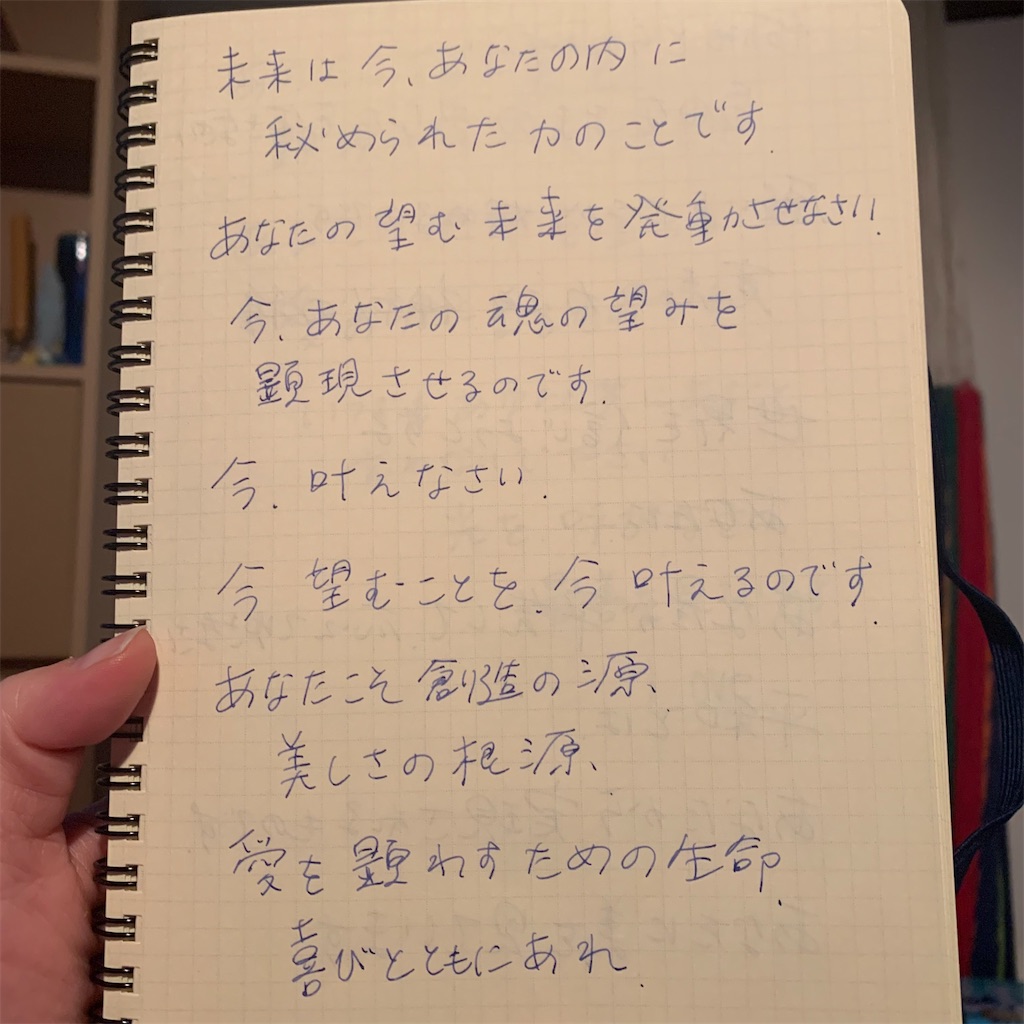 未来は今、あなたの内に
秘められた力のことです.
あなたの望む未来を発動かさせなさい.
今、あなたの魂の望みを
顕現させるのです.
今、叶えなさい.
今 望むことを、今 叶えるのです.
あなたこそ創造の源、
美しさの根源、
愛を顕わすための生命.
喜びとともにあれ.